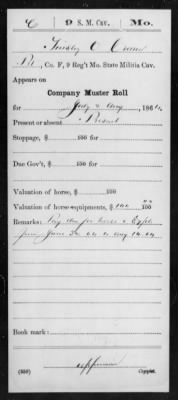 C 9 S. M. Cav. Mo.
Tinsley O Crain
Pvt, Co. F, 9 Reg't Mo. State Militia Cav.
Appears on
Company Muster Roll
for July & Aug, 1864
Present or absent Present
Stoppage, $ 100
Due Gov't, $ 100
Valuation of horse, $ 100
Valuation of horse equipments, $ 100
Remarks: Pay due for horse & Eqpts
from June 30 64 to Aug 14. 64
Book mark:
(359) Copyist.